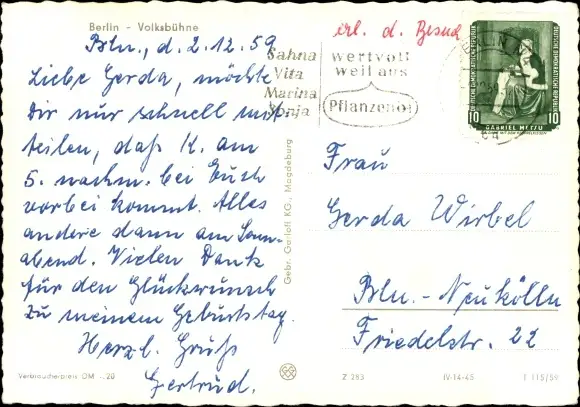 Berlin - Volksbühne
Bln., d. 2.12.59
Liebe Gerda, möchte
Dir nur schnell mit-
teilen, daß K. am
5. nachm. bei Euch
vorbei kommt. Alles
andere dann am Sonn-
abend. Vielen Dank
für den Glückwunsch
zu meinem Geburtstag.
Herzl. Gruß
Gertrud.
Verbraucherpreis DM -.20
Gebr. Garloff KG., Magdeburg
erl. d. Besuch
Sahna
Vita
Marina
Sonja
wertvoll
weil aus
Pflanzenöl
DEUTSCHE DEMOKRATISCHE REPUBLIK
10 10
GABRIEL METSU
Frau
Gerda Wirbel
Bln.-Neukölln
Friedelstr. 22
Z 293 IV-14-45 T 115/59